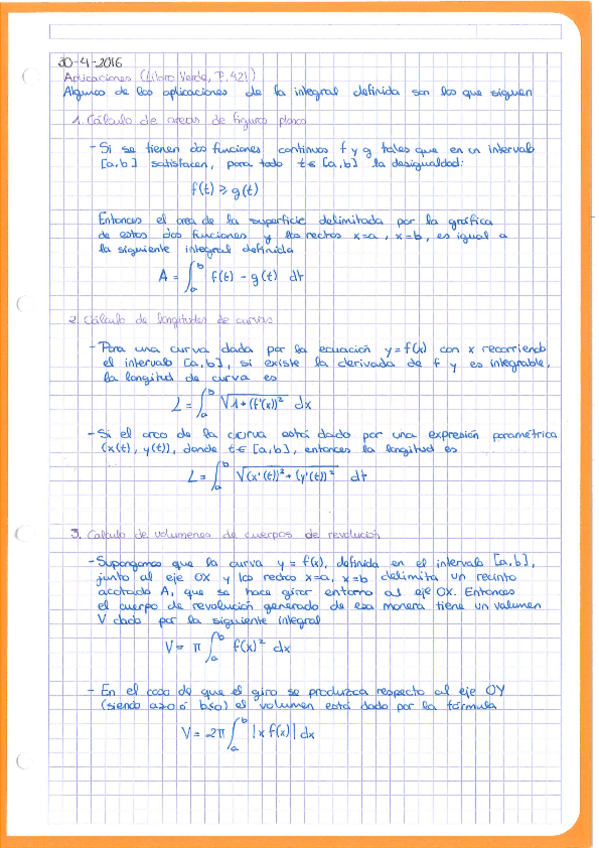 20-4-2016
Aplicaciones (Libro Verde, P.421)
Algunas de las aplicaciones de la integral definida son las que siguen
1. Cálculo de areas de figuras planas
- Si se tienen dos funciones continuas f y g tales que en un intervalo
[a,b] satisfacen, para todo t∈ [a,b] la desigualdad:
f(t) ≥ g(t)
Entonces el area de la superficie delimitada por la gráfica
de estas dos funciones y las rectas x=a, x=b, es igual a
la siguiente integral definida
A = ∫_a^b f(t) - g(t) dt
2. Cálculo de longitudes de curvas
- Para una curva dada por la ecuación y=f(x) con x recorriendo
el intervalo [a,b], si existe la derivada de f y es integrable,
la longitud de curva es
L = ∫_a^b √(1+(f'(x))²) dx
- Si el arco de la curva está dado por una expresión paramétrica
(x(t), y(t)), donde t∈ [a,b], entonces la longitud es
L = ∫_a^b √((x'(t))²+(y'(t))²) dt
3. Calculo de volumenes de cuerpos de revolución
- Supongamos que la curva y = f(x), definida en el intervalo [a,b],
junto al eje OX y las rectas x=a, x=b delimita un recinto
acotado A, que se hace girar entorno al eje OX. Entonces
el cuerpo de revolución generado de esa manera tiene un volumen
V dado por la siguiente integral
V = π ∫_a^b f(x)² dx
- En el caso de que el giro se produzca respecto al eje OY
(siendo a≥0 ó b≤0) el volumen está dado por la fórmula
V = 2π ∫_a^b |x f(x)| dx